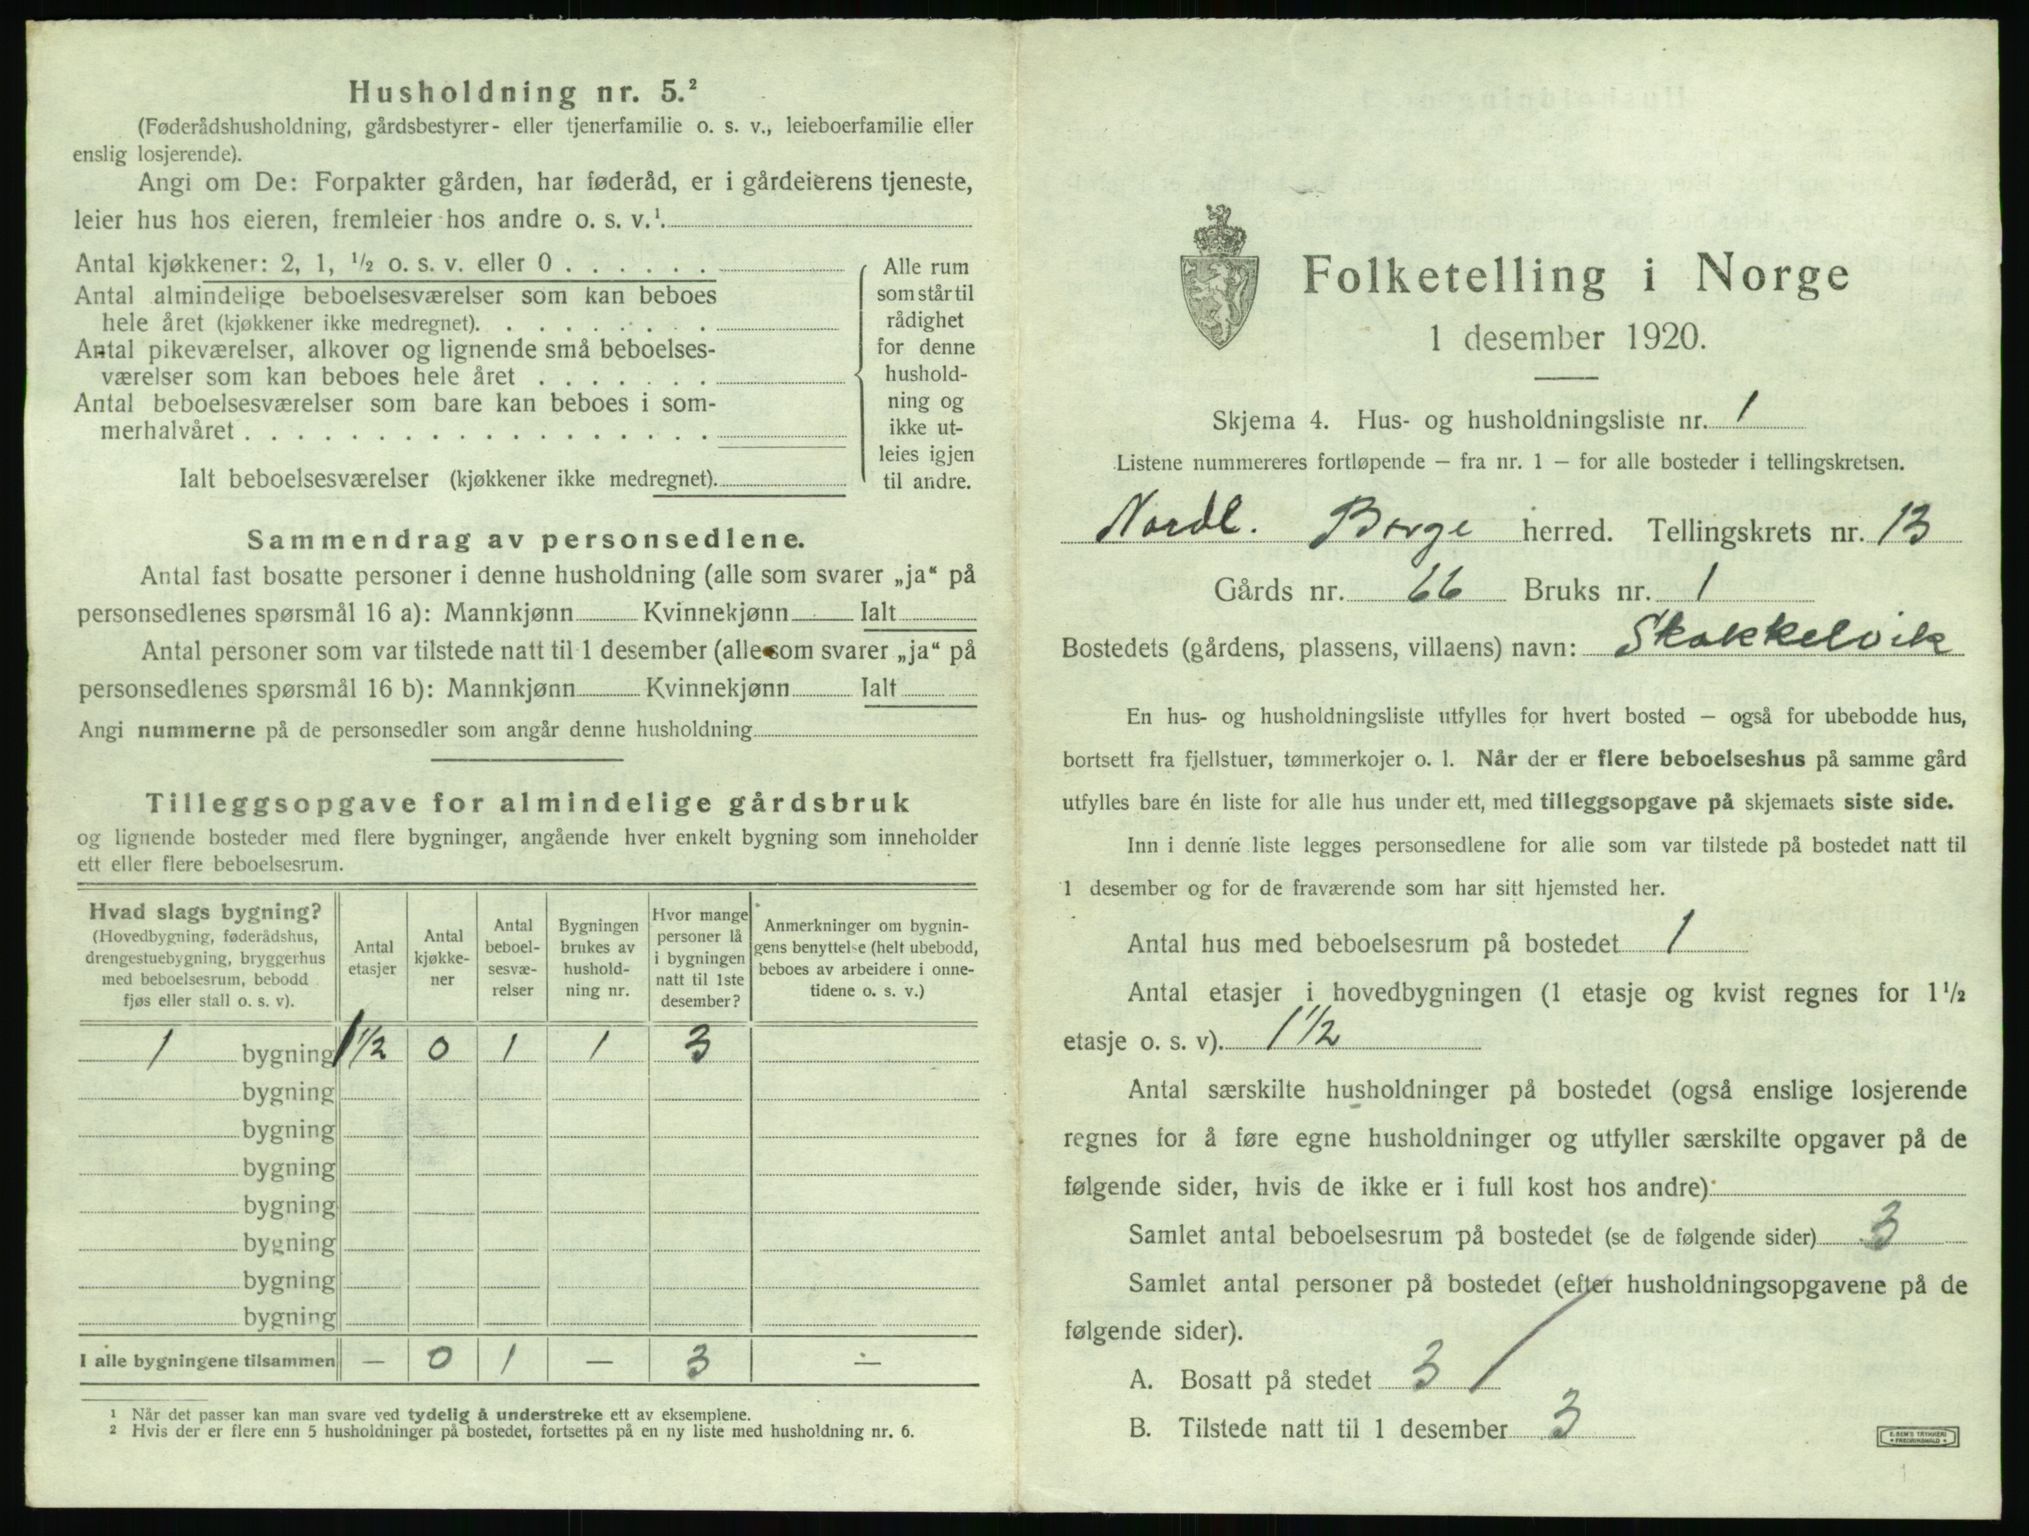 Husholdning nr. 5.²
(Føderådshusholdning, gårdsbestyrer- eller tjenerfamilie o. s. v., leieboerfamilie eller
enslig losjerende).
Angi om De: Forpakter gården, har føderåd, er i gårdeierens tjeneste,
leier hus hos eieren, fremleier hos andre o. s. v.¹.
Antal kjøkkener: 2, 1, ½ o. s. v. eller 0 . . . . . .
Antal almindelige beboelsesværelser som kan beboes
hele året (kjøkkener ikke medregnet). . . . . . . . .
Antal pikeværelser, alkover og lignende små beboelses-
værelser som kan beboes hele året . . . . . . .
Antal beboelsesværelser som bare kan beboes i som-
merhalvåret . . . . . . . . . . . . . . . . . .
Ialt beboelsesværelser (kjøkkener ikke medregnet).
Alle rum
som står til
rådighet
for denne
hushold-
ning og
ikke ut-
leies igjen
til andre.
Sammendrag av personsedlene.
Antal fast bosatte personer i denne husholdning (alle som svarer „ja“ på
personsedlenes spørsmål 16 a): Mannkjønn Kvinnekjønn Ialt
Antal personer som var tilstede natt til 1 desember (alle som svarer „ja“ på
personsedlenes spørsmål 16 b): Mannkjønn Kvinnekjønn Ialt
Angi nummerne på de personsedler som angår denne husholdning
Tilleggsopgave for almindelige gårdsbruk
og lignende bosteder med flere bygninger, angående hver enkelt bygning som inneholder
ett eller flere beboelsesrum.
Hvad slags bygning?
(Hovedbygning, føderådshus,
drengestuebygning, bryggerhus
med beboelsesrum, bebodd
fjøs eller stall o. s. v).
Antal
etasjer
Antal
kjøkke-
ner
Antal
beboel-
sesvæ-
relser
Bygningen
brukes av
hushold-
ning nr.
Hvor mange
personer lå
i bygningen
natt til 1ste
desember?
Anmerkninger om bygnin-
gens benyttelse (helt ubebodd,
beboes av arbeidere i onne-
tidene o. s. v.)
1 bygning 1½ 0 1 1 3
bygning
bygning
bygning
bygning
bygning
bygning
bygning
I alle bygningene tilsammen — 0 1 — 3 —
¹ Når det passer kan man svare ved tydelig å understreke ett av eksemplene.
² Hvis der er flere enn 5 husholdninger på bostedet, fortsettes på en ny liste med husholdning nr. 6.
Folketelling i Norge
1 desember 1920.
Skjema 4. Hus- og husholdningsliste nr. 1
Listene nummereres fortløpende — fra nr. 1 — for alle bosteder i tellingskretsen.
Nordl. Borge herred. Tellingskrets nr. 13
Gårds nr. 66 Bruks nr. 1
Bostedets (gårdens, plassens, villaens) navn: Skokkelvik
En hus- og husholdningsliste utfylles for hvert bosted — også for ubebodde hus,
bortsett fra fjellstuer, tømmerkojer o. l. Når der er flere beboelseshus på samme gård
utfylles bare én liste for alle hus under ett, med tilleggsopgave på skjemaets siste side.
Inn i denne liste legges personsedlene for alle som var tilstede på bostedet natt til
1 desember og for de fraværende som har sitt hjemsted her.
Antal hus med beboelsesrum på bostedet 1
Antal etasjer i hovedbygningen (1 etasje og kvist regnes for 1½
etasje o. s. v). 1½
Antal særskilte husholdninger på bostedet (også enslige losjerende
regnes for å føre egne husholdninger og utfyller særskilte opgaver på de
følgende sider, hvis de ikke er i full kost hos andre)
Samlet antal beboelsesrum på bostedet (se de følgende sider) 3
Samlet antal personer på bostedet (efter husholdningsopgavene på de
følgende sider).
A. Bosatt på stedet 3
B. Tilstede natt til 1 desember 3
E. SEM'S TRYKKERI
FREDRIKSHALD